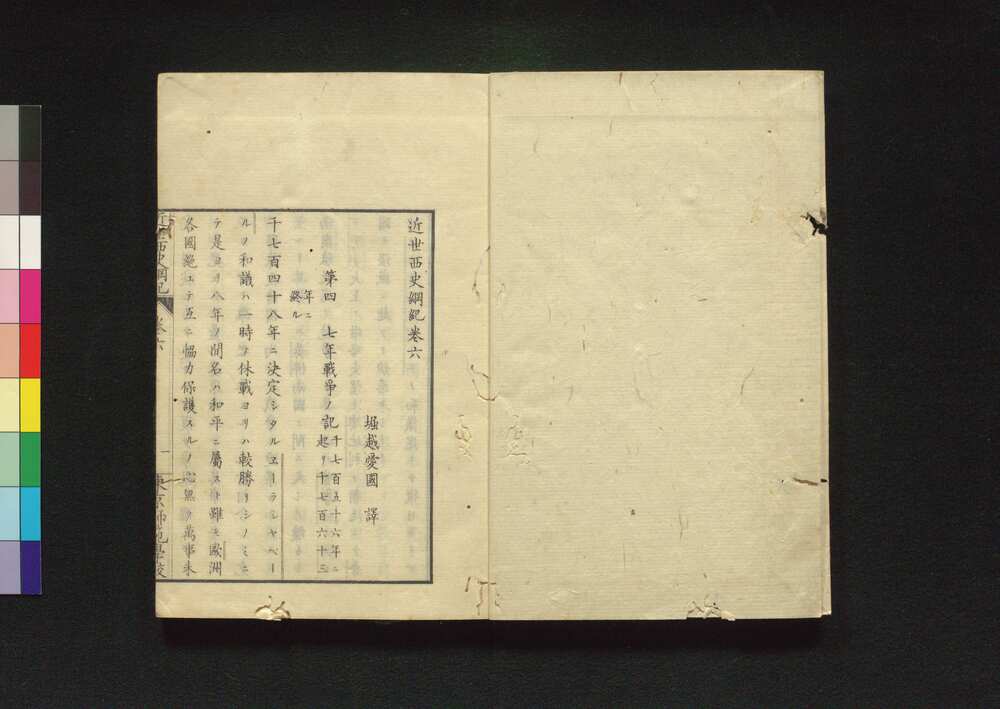 近世西史綱紀卷六
堀越愛國 譯
第四 七年戰爭ノ記 千七百五十六年ニ
起リ千七百六十三
年ニ
終ル
千七百四十八年ニ決定シタルエーラシヤペー
ルノ和議ハ一時ノ休戰ヨリハ較勝リシノミニ
テ是ヨリ八年ノ間名ハ和平ニ屬スト雖モ歐洲
各國絶エテ互ニ恊力保護スルノ心無ク萬事未
近世西史綱紀
卷六
一
東京師範學校